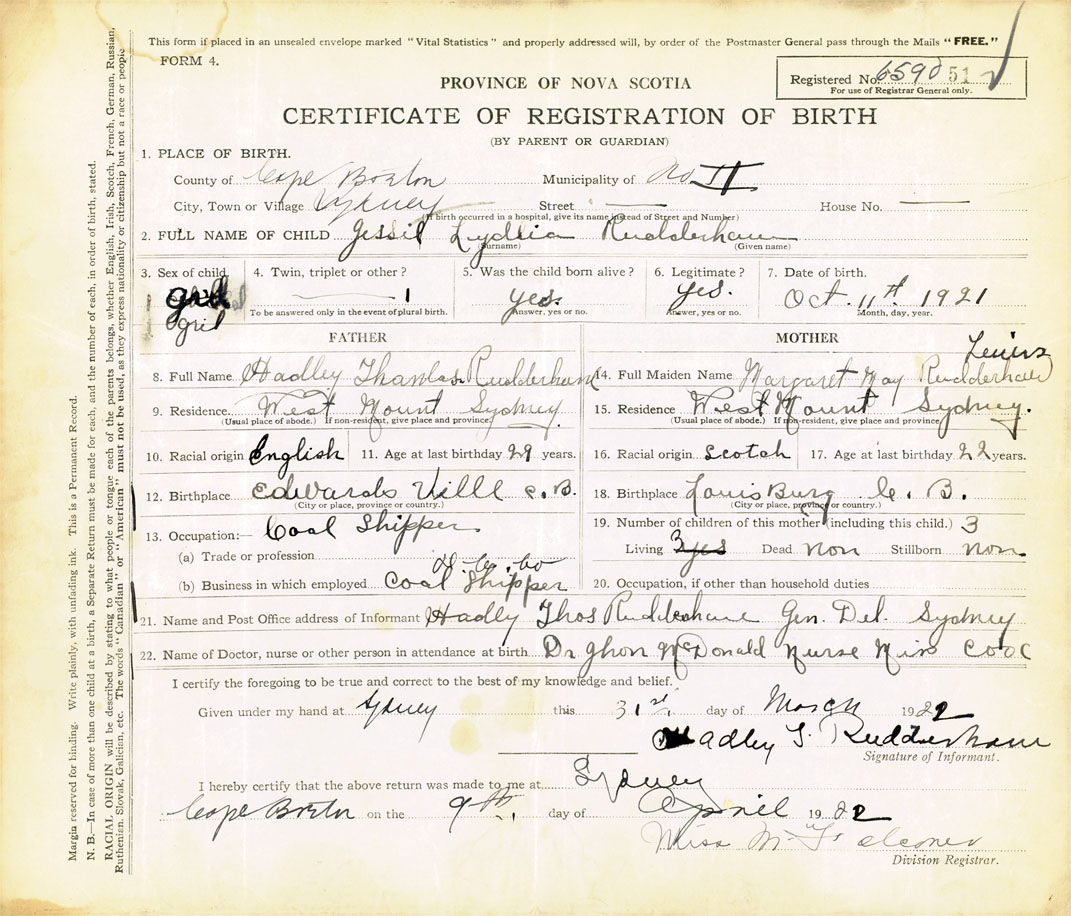 This form if placed in an unsealed envelope marked "Vital Statistics" and properly addressed will, by order of the Postmaster General pass through the Mails "FREE."
FORM 4.
Registered No. 51
For use of Registrar General only.
PROVINCE OF NOVA SCOTIA
CERTIFICATE OF REGISTRATION OF BIRTH
(BY PARENT OR GUARDIAN)
1. PLACE OF BIRTH.
County of Cape Breton Municipality of No II
City, Town or Village Sydney Street — House No. —
(If birth occurred in a hospital, give its name instead of Street and Number)
2. FULL NAME OF CHILD Jessie Lyddia Rudderham
(Surname) (Given name)
3. Sex of child girl
gril
4. Twin, triplet or other? — 1
To be answered only in the event of plural birth.
5. Was the child born alive? yes.
Answer, yes or no.
6. Legitimate? yes.
Answer, yes or no.
7. Date of birth. Oct. 11th 1921
Month, day, year.
FATHER
8. Full Name Hadley Thomas Rudderham
9. Residence West Mount Sydney
(Usual place of abode.) If non-resident, give place and province.
10. Racial origin English 11. Age at last birthday 29 years.
12. Birthplace Edwards Ville C. B.
(City or place, province or country.)
13. Occupation:— Coal Shipper
(a) Trade or profession
(b) Business in which employed Coal Shipper
MOTHER
14. Full Maiden Name Margaret May Rudderham
15. Residence West Mount Sydney.
(Usual place of abode.) If non-resident, give place and province
16. Racial origin Scotch 17. Age at last birthday 22 years.
18. Birthplace Louis Burg C. B.
(City or place, province or country.)
19. Number of children of this mother (including this child.) 3
Living 3 yes Dead non Stillborn non
20. Occupation, if other than household duties
21. Name and Post Office address of Informant Hadley Thos Rudderham Gen. Del. Sydney
22. Name of Doctor, nurse or other person in attendance at birth Dr Jhon McDonald Nurse Miss
I certify the foregoing to be true and correct to the best of my knowledge and belief.
Given under my hand at Sydney this 31st day of March 1922
Hadley T. Rudderham
Signature of Informant.
I hereby certify that the above return was made to me at Sydney
Cape Breton on the 9th day of April 1922
Miss M. Falconer
Division Registrar.
Margin reserved for binding. Write plainly, with unfading ink. This is a Permanent Record.
N. B.—In case of more than one child at a birth, a Separate Return must be made for each, and the number of each, in order of birth, stated.
RACIAL ORIGIN will be described by stating to what people or tongue each of the parents belongs, whether English, Irish, Scotch, French, German, Russian,
Ruthenian, Slovak, Galician, etc. The words "Canadian" or "American" must not be used, as they express nationality or citizenship but not a race or people